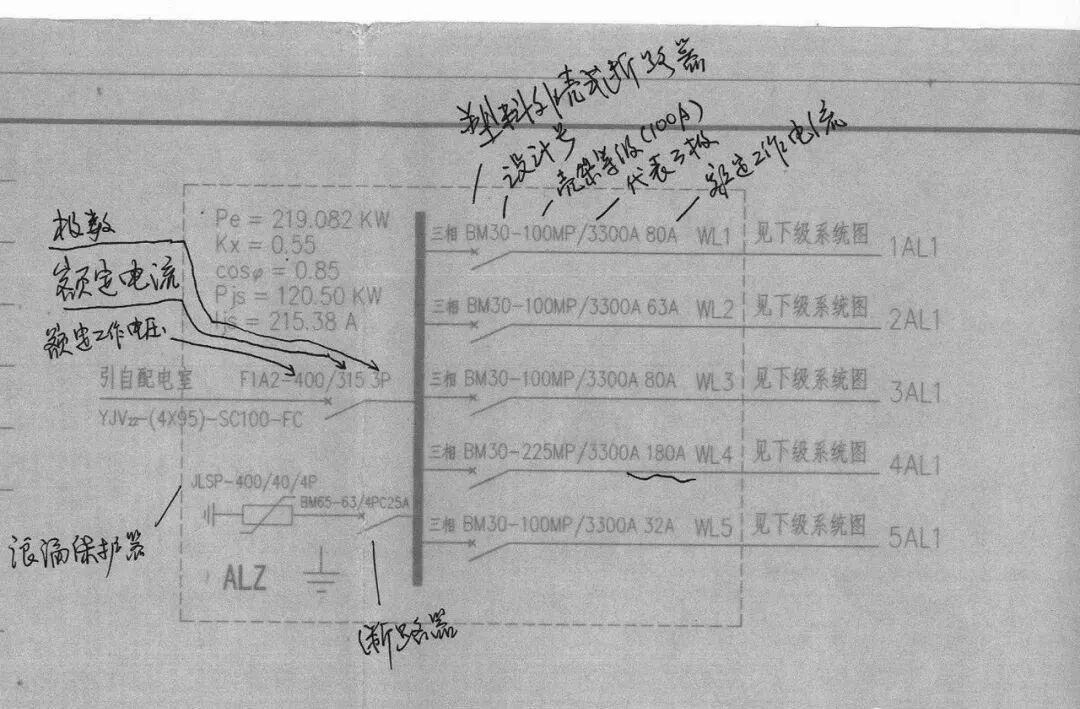 塑料外壳式断路器
设计号
壳架等级(100A)
代表3极
额定工作电流
极数
额定电流
额定工作电压
Pe = 219.082 KW
Kx = 0.55
cosφ = 0.85
Pjs = 120.50 KW
Ijs = 215.38 A
引自配电室 F1A2-400/315 3P
YJV22-(4X95)-SC100-FC
三相 BM30-100MP/3300A 80A WL1 见下级系统图 1AL1
三相 BM30-100MP/3300A 63A WL2 见下级系统图 2AL1
三相 BM30-100MP/3300A 80A WL3 见下级系统图 3AL1
三相 BM30-225MP/3300A 180A WL4 见下级系统图 4AL1
三相 BM30-100MP/3300A 32A WL5 见下级系统图 5AL1
JLSP-400/40/4P
BM65-63/4PC25A
浪涌保护器
ALZ
断路器